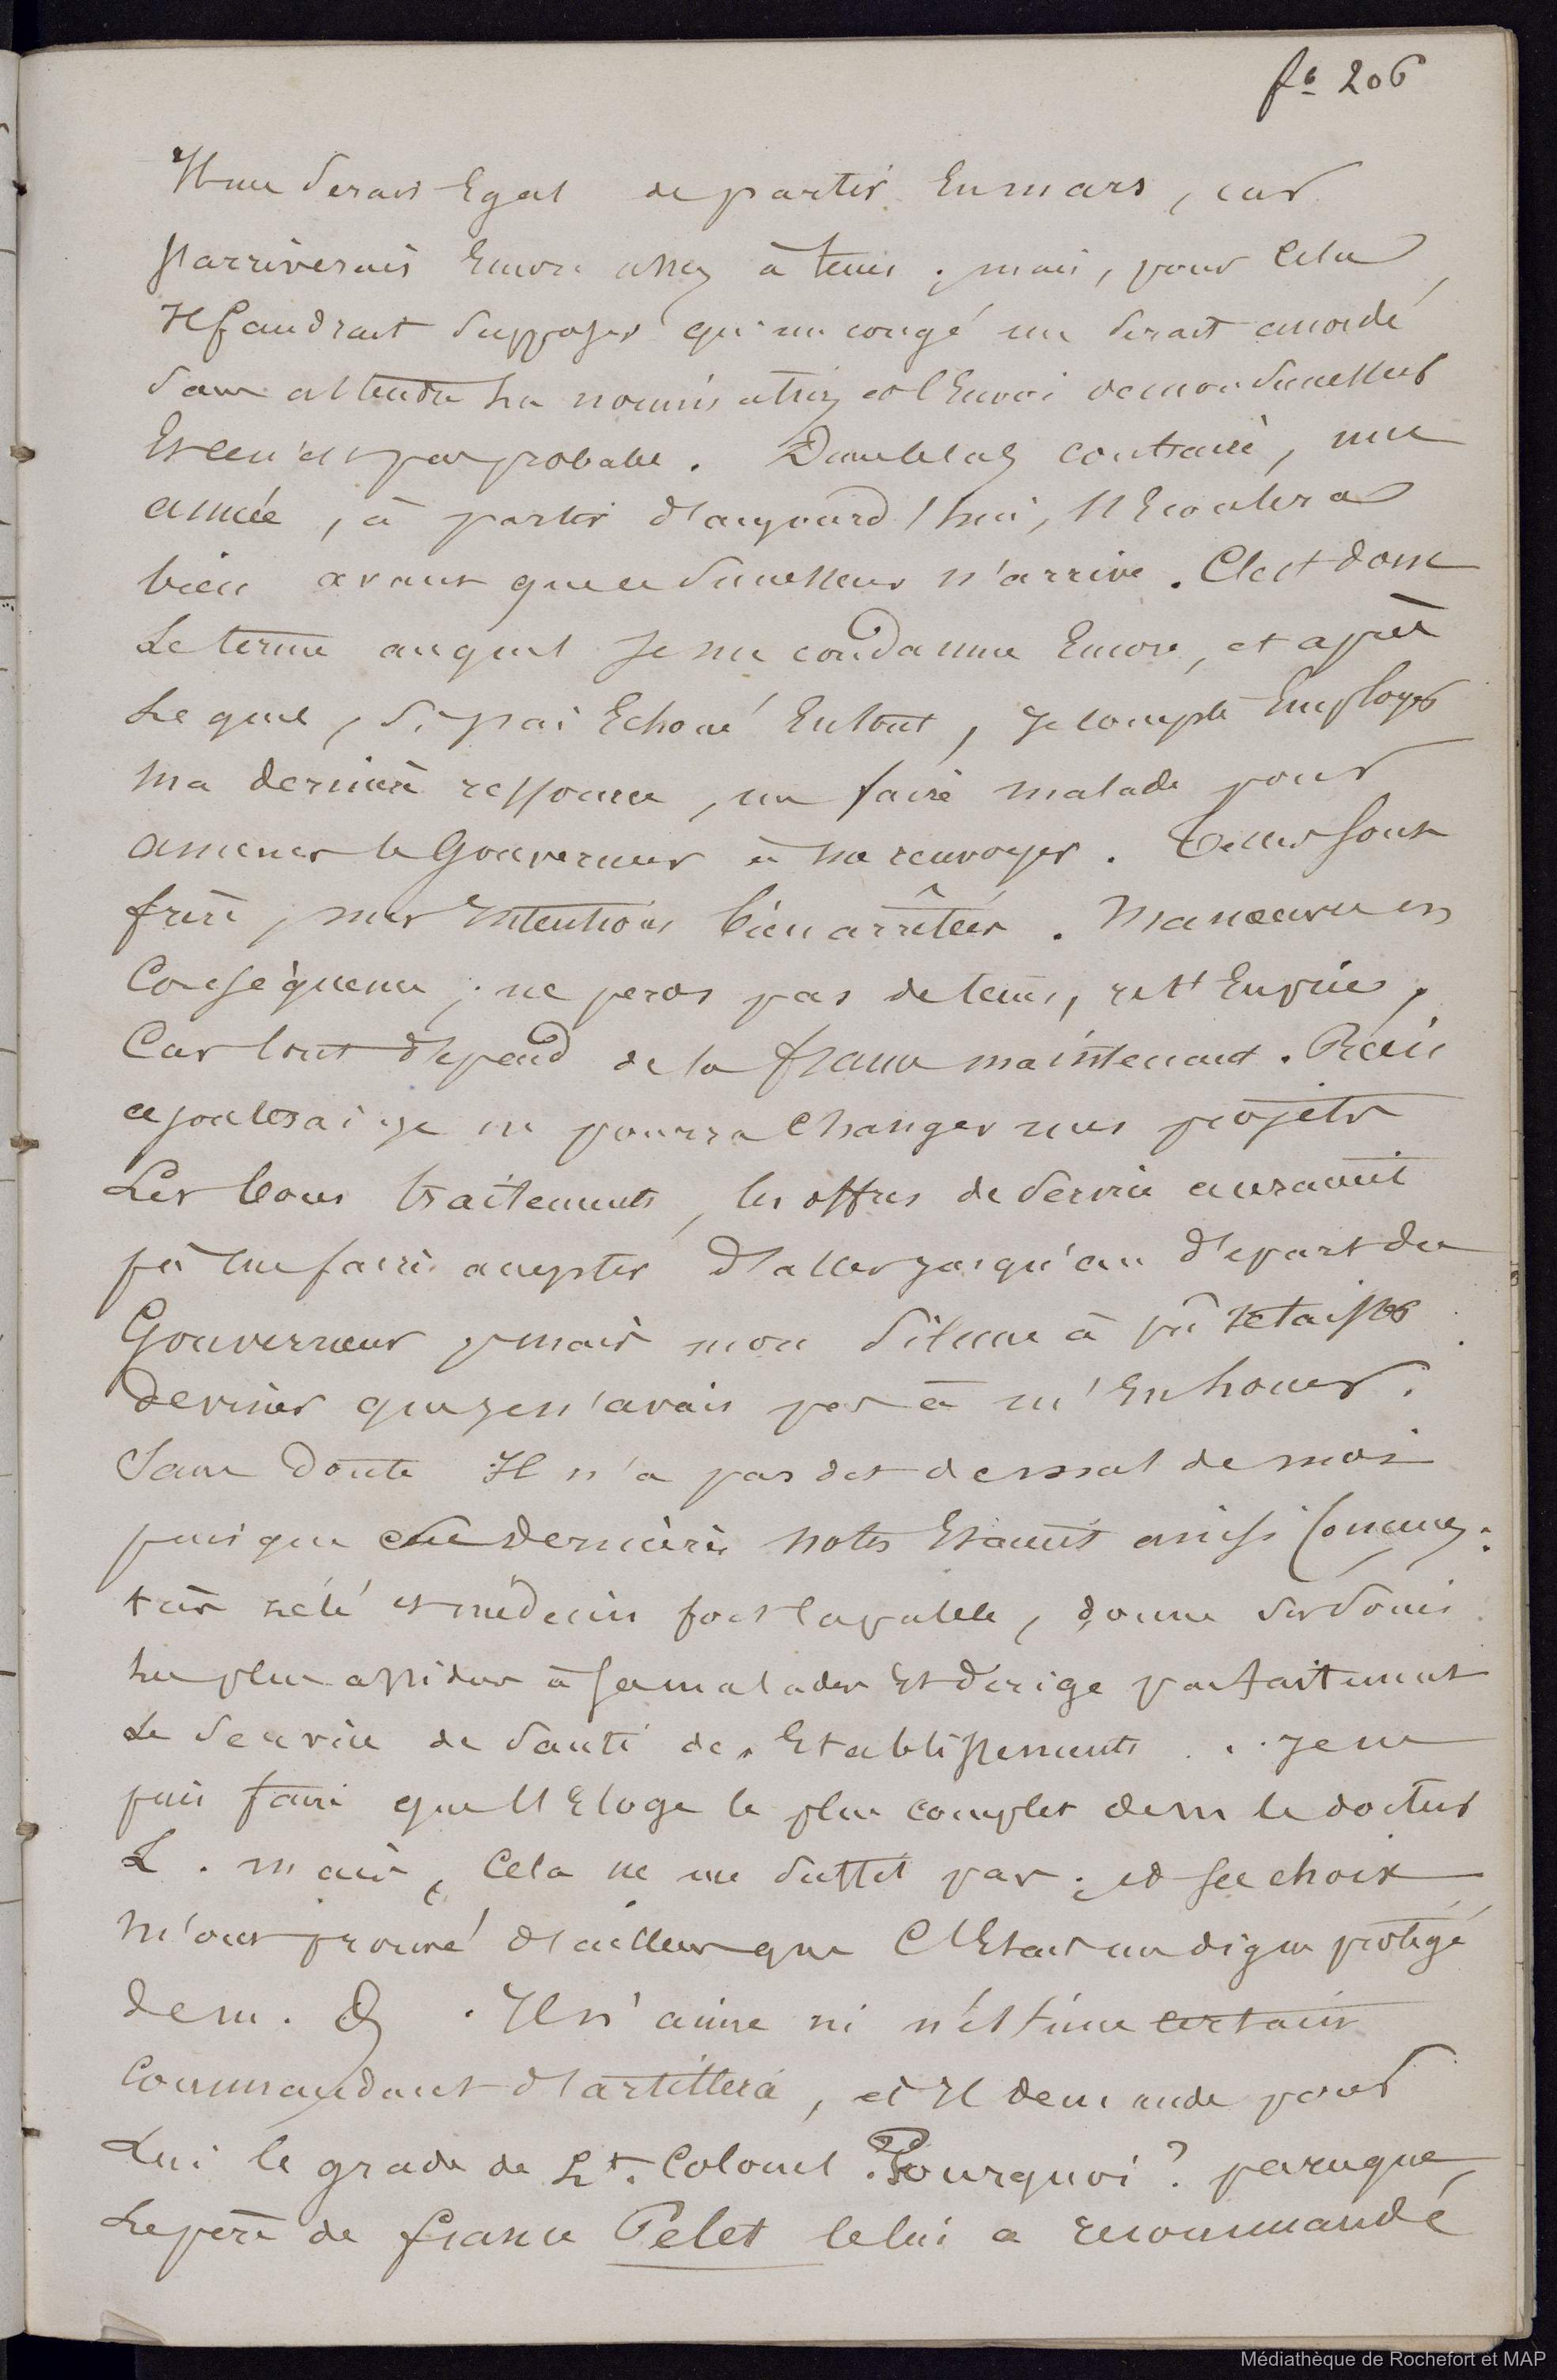 fo 206
Il me serais Egal de partir En mars, car
j'arriverais Encore assez à tems ; mais, pour Cela,
Il faudrait supposer qu'un congé me serait accordé
sans attendre La nomination et l'Envoi de mon successeur
Et ce n'est pas probable. Dans le cas contraire, une
année, à partir d'aujourd'hui, s'Ecoulera
bien avant que ce successeur n'arrive. C'est donc
Le terme auquel Je me condamne Encore, et après
Lequel, si j'ai Echoué En tout, je compte Employer
Ma dernière ressource, me faire malade pour
amener le Gouverneur à me renvoyer. Telles sont
frère, mes Intentions bien arrêtées. Manœuvre en
Conséquence ; ne perds pas de tems, je t'En prie,
Car tout dépend de la france maintenant. Rien
ajouterai-je ne pourra Changer mes projets
Les bons traitements, les offres de service auraient
pu me faire accepter d'aller jusqu'au départ du
Gouverneur, mais mon silence a pû le laisser
deviner que je n'avais pas à m'En louer.
Sans Doute Il n'a pas dit de mal de moi
puisque ses dernières notes Etaient ainsi Conçues :
très zélé et médecin fort capable, donne ses soins
Les plus assidus à ses malades Et dirige parfaitement
Le service de santé des Etablissements .. je ne
puis faire que l'Eloge le plus complet de m le docteur
L. mais, Cela ne me suffit pas ; et ses choix
M'ont prouvé d'ailleurs que C'Etait un digne protégé
de m. D. Il n'aime ni n'estime certain
Commandant d'artillerie, et Il demande pour
Lui le grade de Lt. Colonel. Pourquoi ? parceque,
Le père de france Pelet le lui a recommandé
Médiathèque de Rochefort et MAP